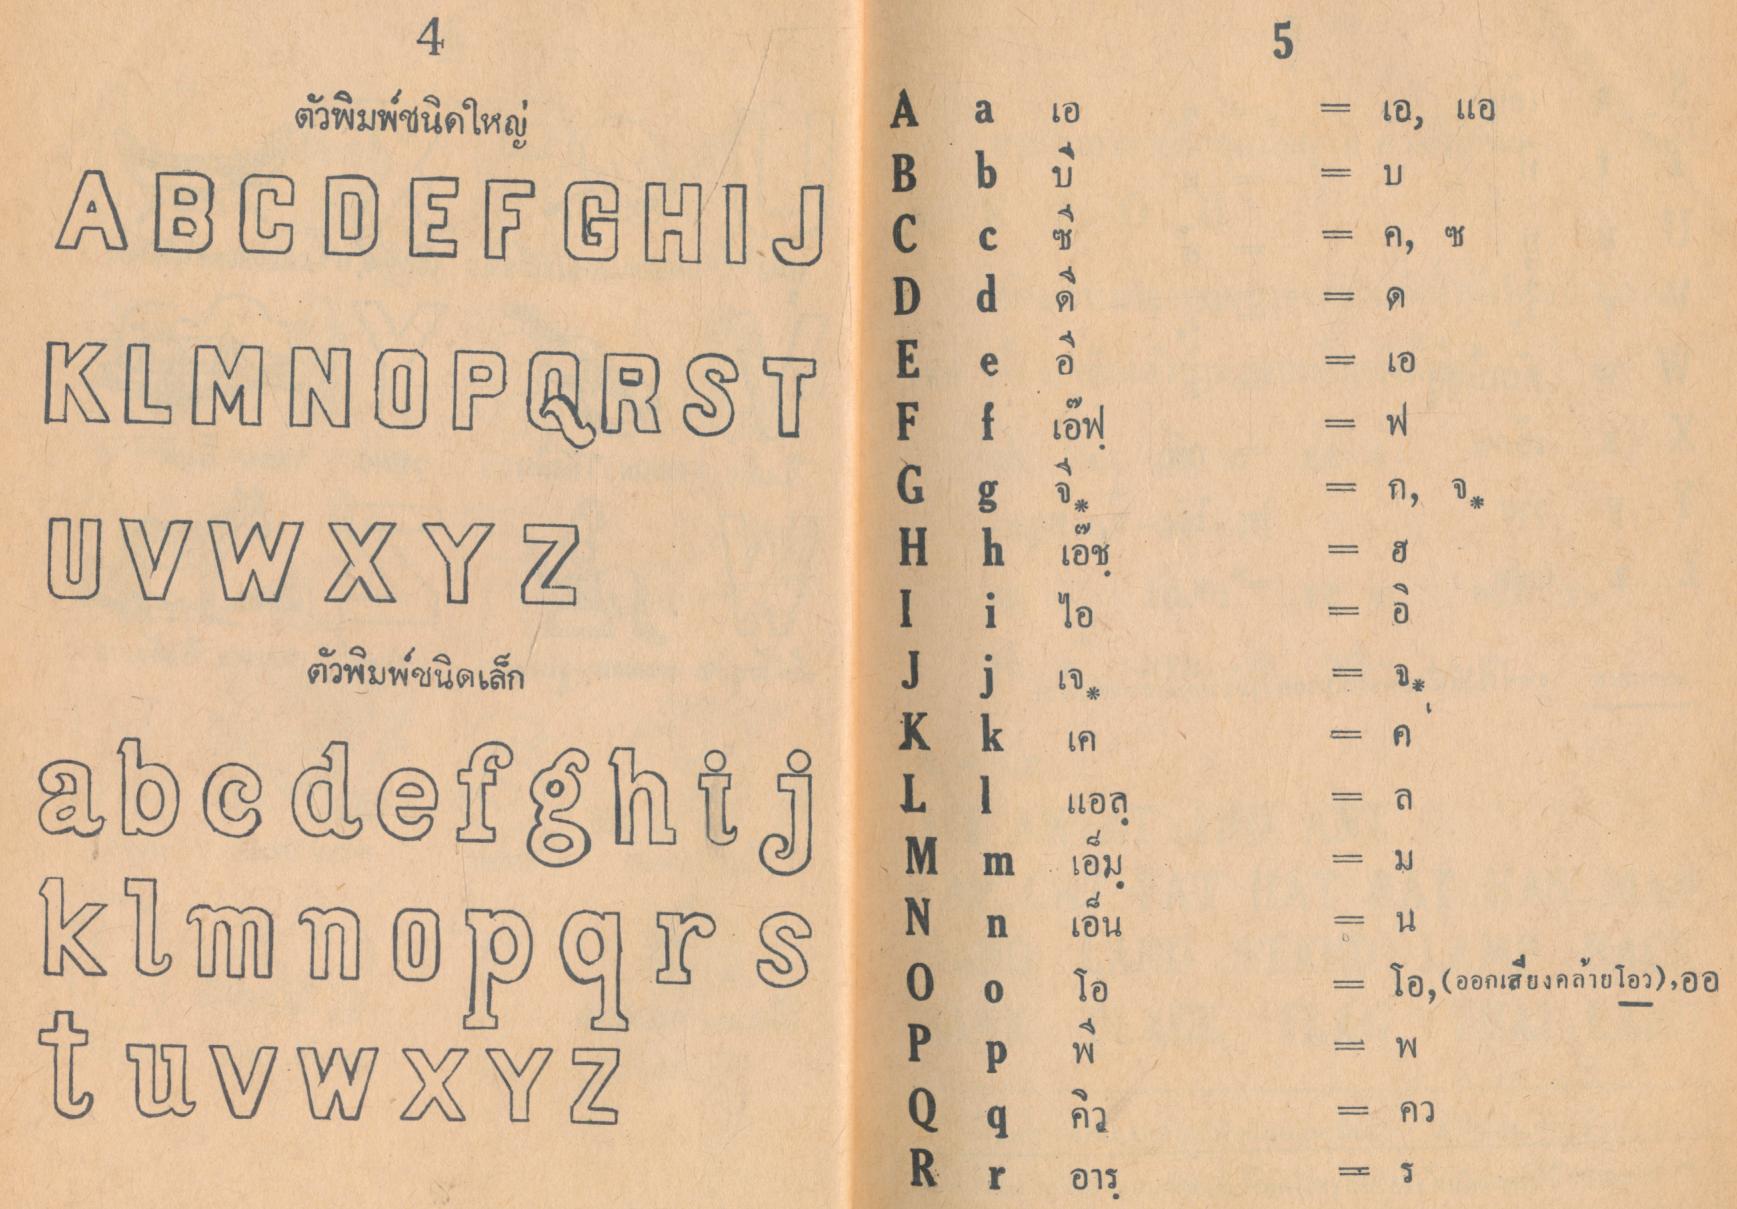 4
ตัวพิมพ์ชนิดใหญ่
A B C D E F G H I J
K L M N O P Q R S T
U V W X Y Z
ตัวพิมพ์ชนิดเล็ก
a b c d e f g h i j
k l m n o p q r s
t u v w x y z
5
A a เอ = เอ, แอ
B b บี = บ
C c ซี = ค, ซ
D d ดี = ด
E e อี = เอ
F f เอ๊ฟฺ = ฟ
G g จี* = ก, จ*
H h เอ๊ชฺ = ฮ
I i ไอ = อิ
J j เจ* = จ*
K k เค = ค
L l แอลฺ = ล
M m เอ็มฺ = ม
N n เอ็น = น
O o โอ = โอ,(ออกเสียงคล้ายโอว),ออ
P p พี = พ
Q q คิว = คว
R r อารฺ = ร